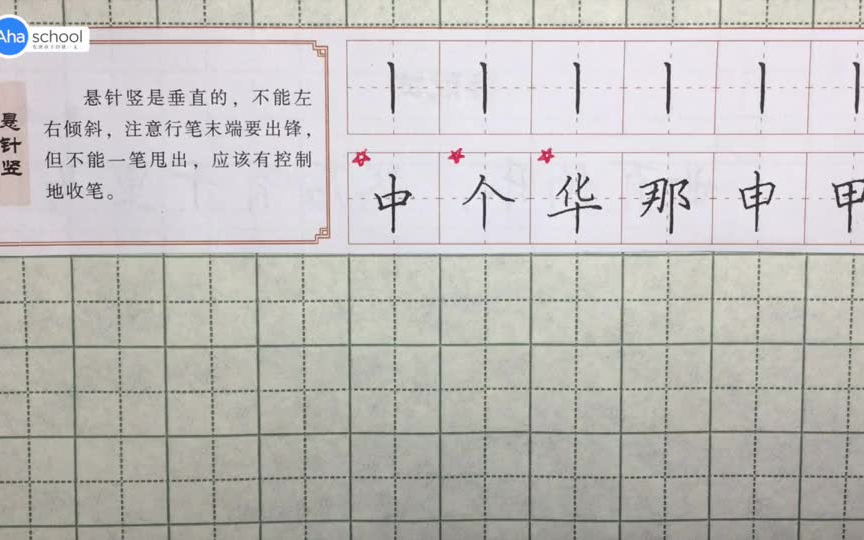 Aha school
悬针竖
悬针竖是垂直的，不能左
右倾斜，注意行笔末端要出锋，
但不能一笔甩出，应该有控制
地收笔。
中 个 华 那 申 甲